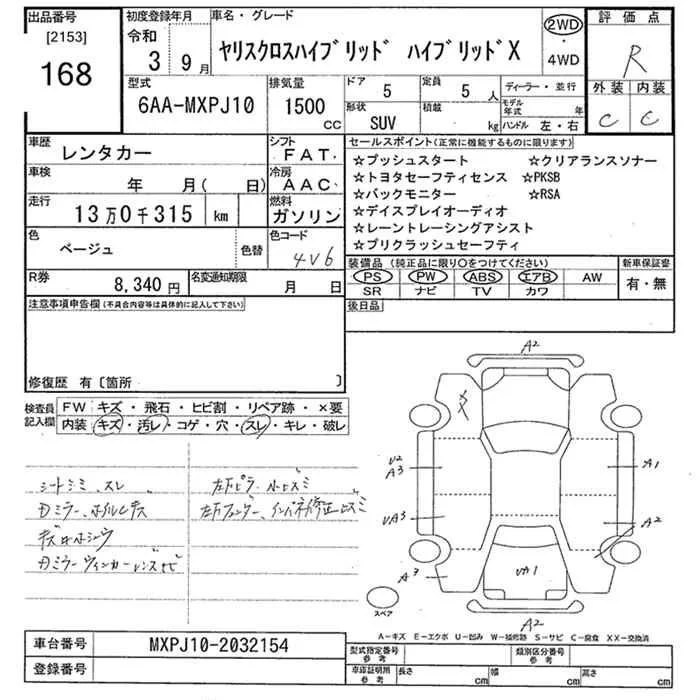 出品番号
[2153]
168
初度登録年月
令和
3年 9月
車名・グレード
ヤリスクロスハイブリッド ハイブリッドX
2WD
・
4WD
評価点
R
外装 内装
C C
型式
6AA-MXPJ10
排気量
1500
CC
ドア
5
定員
5 人
ディーラー・並行
モデル年式 年
形状
SUV
積載
kg
ハンドル 左・右
車歴
レンタカー
シフト
FAT
車検
年 月( 日)
冷房
AAC
走行
13万0千315 km
燃料
ガソリン
色
ベージュ
色替
色コード
4V6
R券
8,340 円
名変通知期限
月 日
セールスポイント(正常に機能するものに限ります)
☆プッシュスタート ☆クリアランスソナー
☆トヨタセーフティセンス ☆PKSB
☆バックモニター ☆RSA
☆デイスプレイオーディオ
☆レーントレーシングアシスト
☆プリクラッシュセーフティ
装備品(純正品に限り○をつけてください)
PS PW ABS エアB AW
SR ナビ TV カワ
新車保証書
有・無
後日品
注意事項申告欄(不具合内容等は具体的に記入して下さい)
修復歴 有〔箇所 〕
検査員
記入欄
FW キズ・飛石・ヒビ割・リペア跡・×要
内装 キズ・汚レ・コゲ・穴・スレ・キレ・破レ
シートシミ、スレ
A2
U2
A3
A1
UA3
A2
A3
UA1
A2
スペア
A-キズ E-エクボ U-凹み W-補修跡 S-サビ C-腐食 XX-交換済
車台番号
MXPJ10-2032154
登録番号
型式指定番号
参考
類別区分番号
参考
車庫証明用
参考
長さ cm
幅 cm
高さ cm